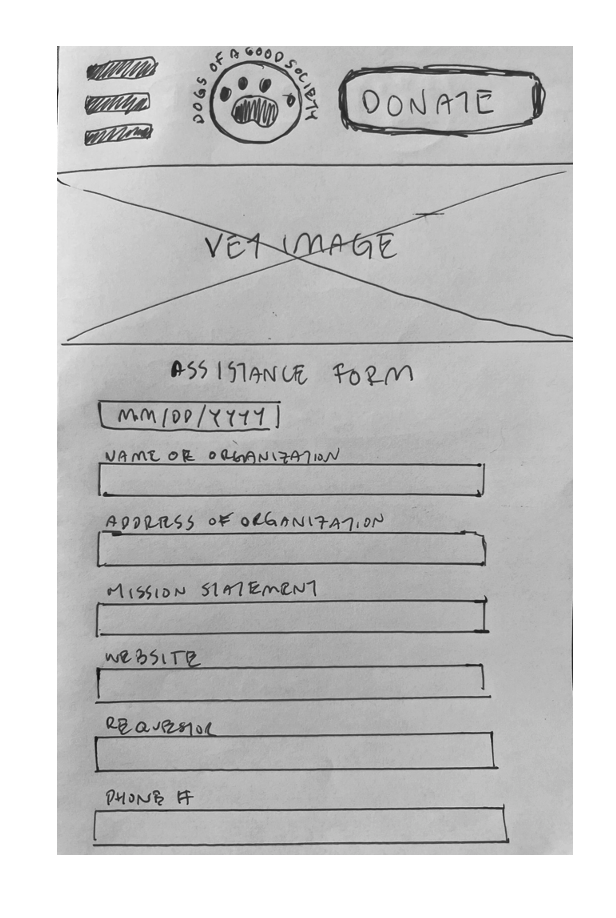 DOGS OF A GOOD SOCIETY
DONATE
VET IMAGE
ASSISTANCE FORM
MM/DD/YYYY
NAME OF ORGANIZATION
ADDRESS OF ORGANIZATION
MISSION STATEMENT
WEBSITE
REQUESTOR
PHONE #